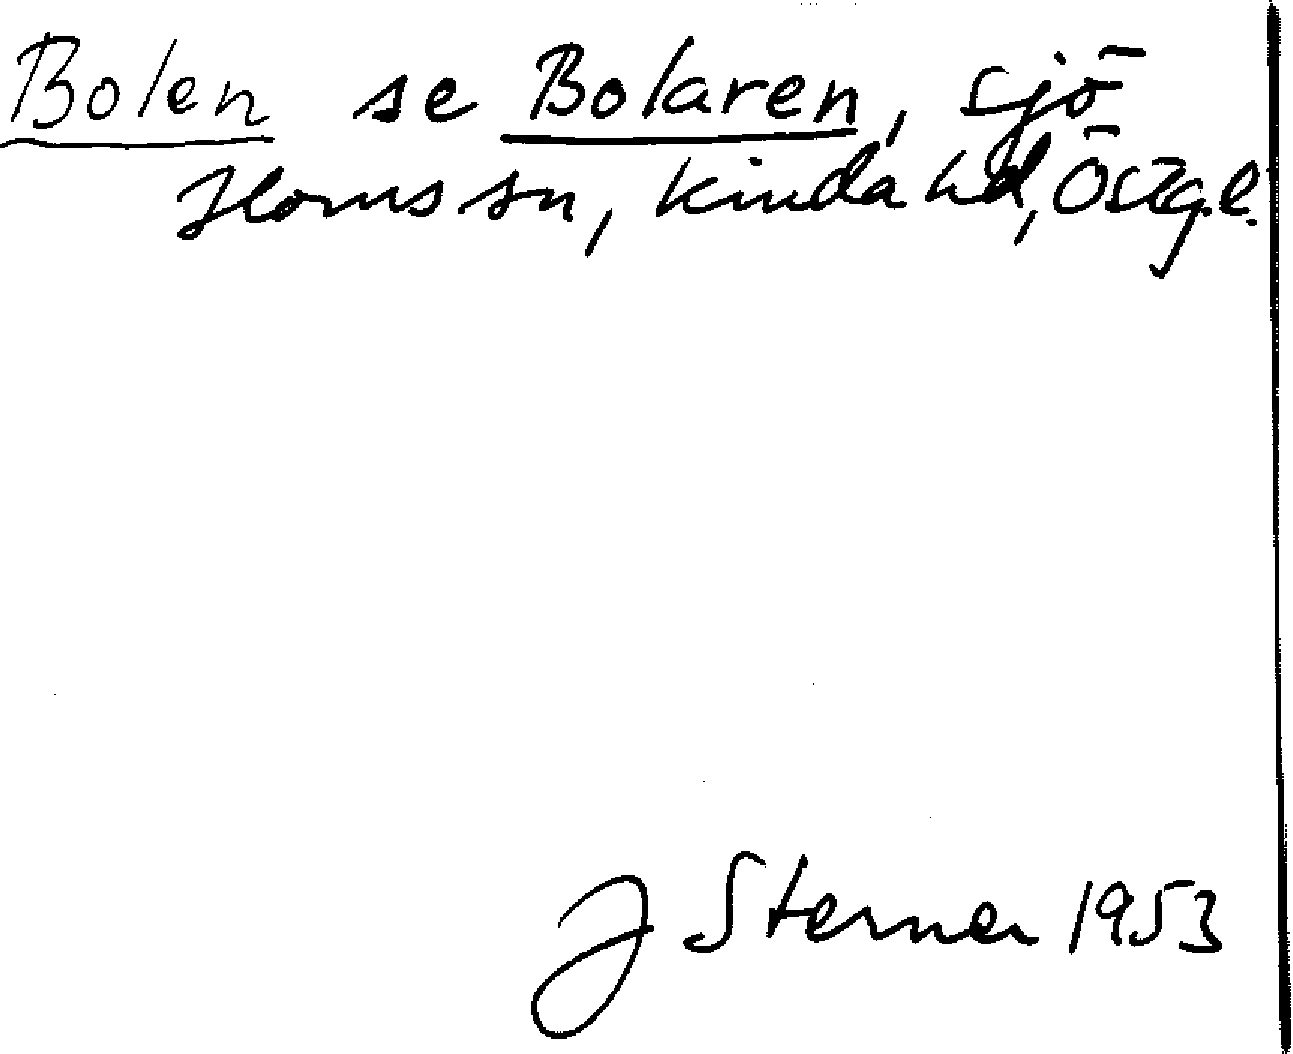 Bolen se Bolaren, sjö
Horns sn, Kinda hd, Östg.l.
J Sterner 1953